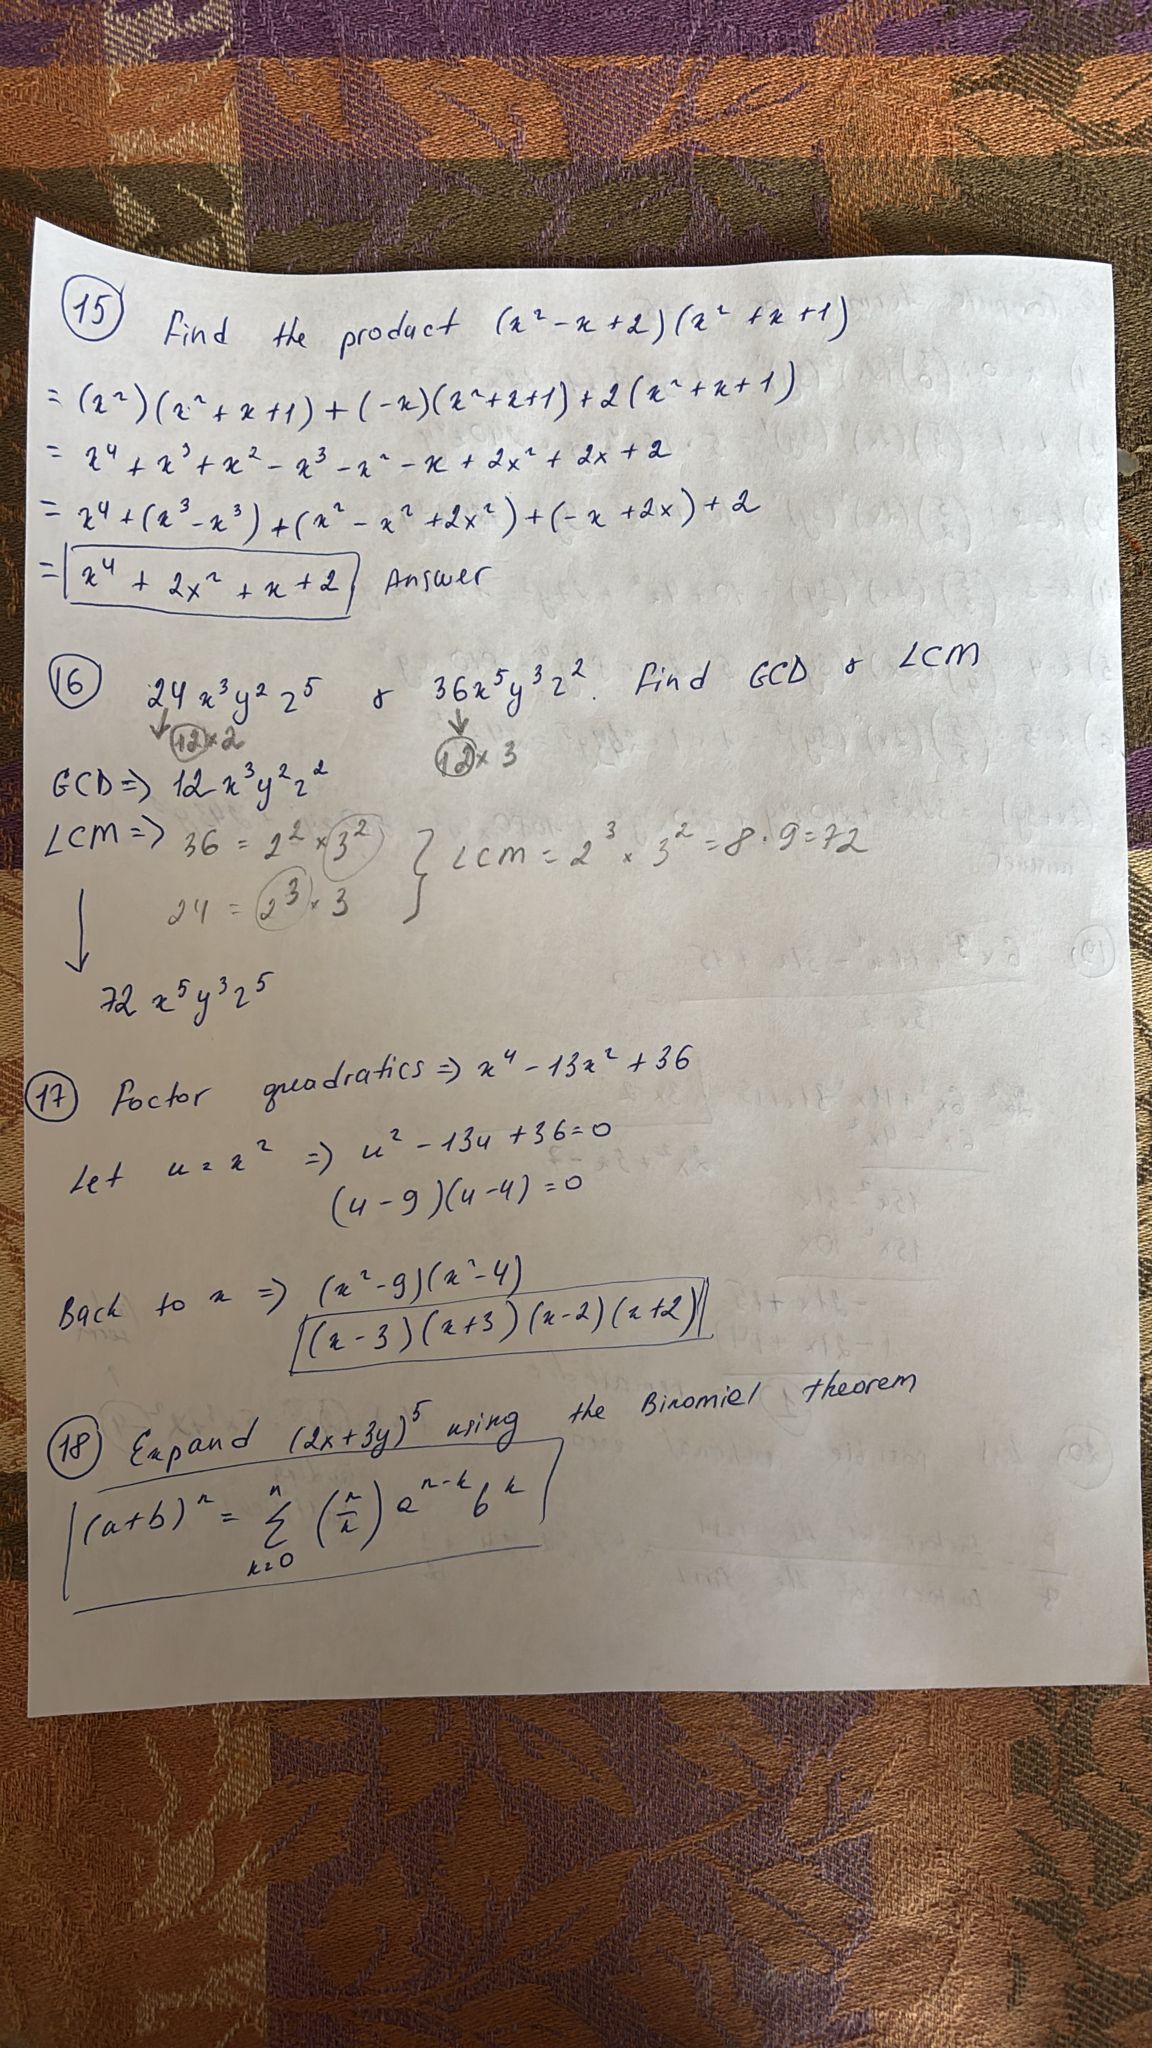 15 Find the product (x² - x + 2)(x² + x + 1)
= (x²)(x² + x + 1) + (-x)(x² + x + 1) + 2(x² + x + 1)
= x⁴ + x³ + x² - x³ - x² - x + 2x² + 2x + 2
= x⁴ + (x³ - x³) + (x² - x² + 2x²) + (-x + 2x) + 2
= x⁴ + 2x² + x + 2 Answer
16 24x³y²z⁵ & 36x⁵y³z². Find GCD & LCM
↓ 12 × 2 ↓ 12 × 3
GCD ⇒ 12x³y²z²
LCM ⇒ 36 = 2² × 3² } LCM = 2³ × 3² = 8 · 9 = 72
24 = 2³ × 3
↓
72x⁵y³z⁵
17 Factor quadratics ⇒ x⁴ - 13x² + 36
Let u = x² ⇒ u² - 13u + 36 = 0
(u - 9)(u - 4) = 0
Back to x ⇒ (x² - 9)(x² - 4)
(x - 3)(x + 3)(x - 2)(x + 2)
18 Expand (2x + 3y)⁵ using the Binomial theorem
(a + b)ⁿ = Σ_{k=0}^{n} (n/k) aⁿ⁻ᵏ bᵏ